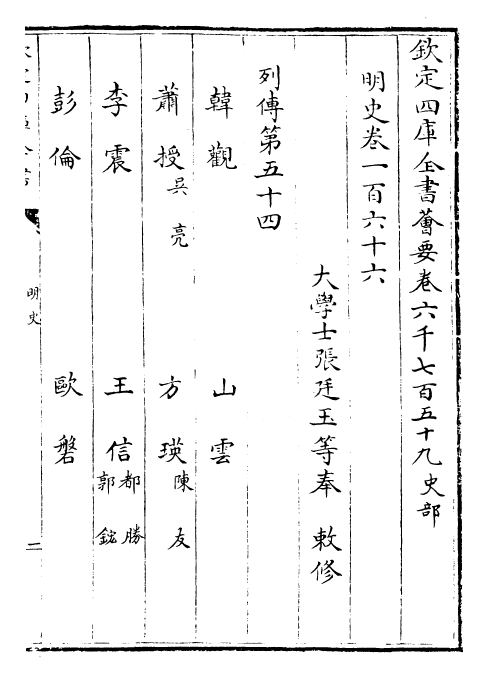 欽定四庫全書薈要卷六千七百五十九史部
明史卷一百六十六
大學士張廷玉等奉 敕修
列傳第五十四
韓觀 山雲
蕭授 吳亮 方瑛 陳友
李震 王信 都勝 郭鋐
彭倫 歐磐
明史
二